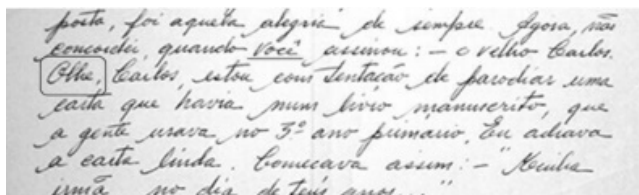 posta, foi aquela alegria de sempre. Agora, não
concordei, quando você assinou: - o velho Carlos.
Olhe, Carlos, estou com tentação de parodiar uma
carta que havia num livro manuscrito, que
a gente usava no 3º ano primário. Eu achava
a carta linda. Comecava assim: - "Minha
irmã no dia de teus anos..."